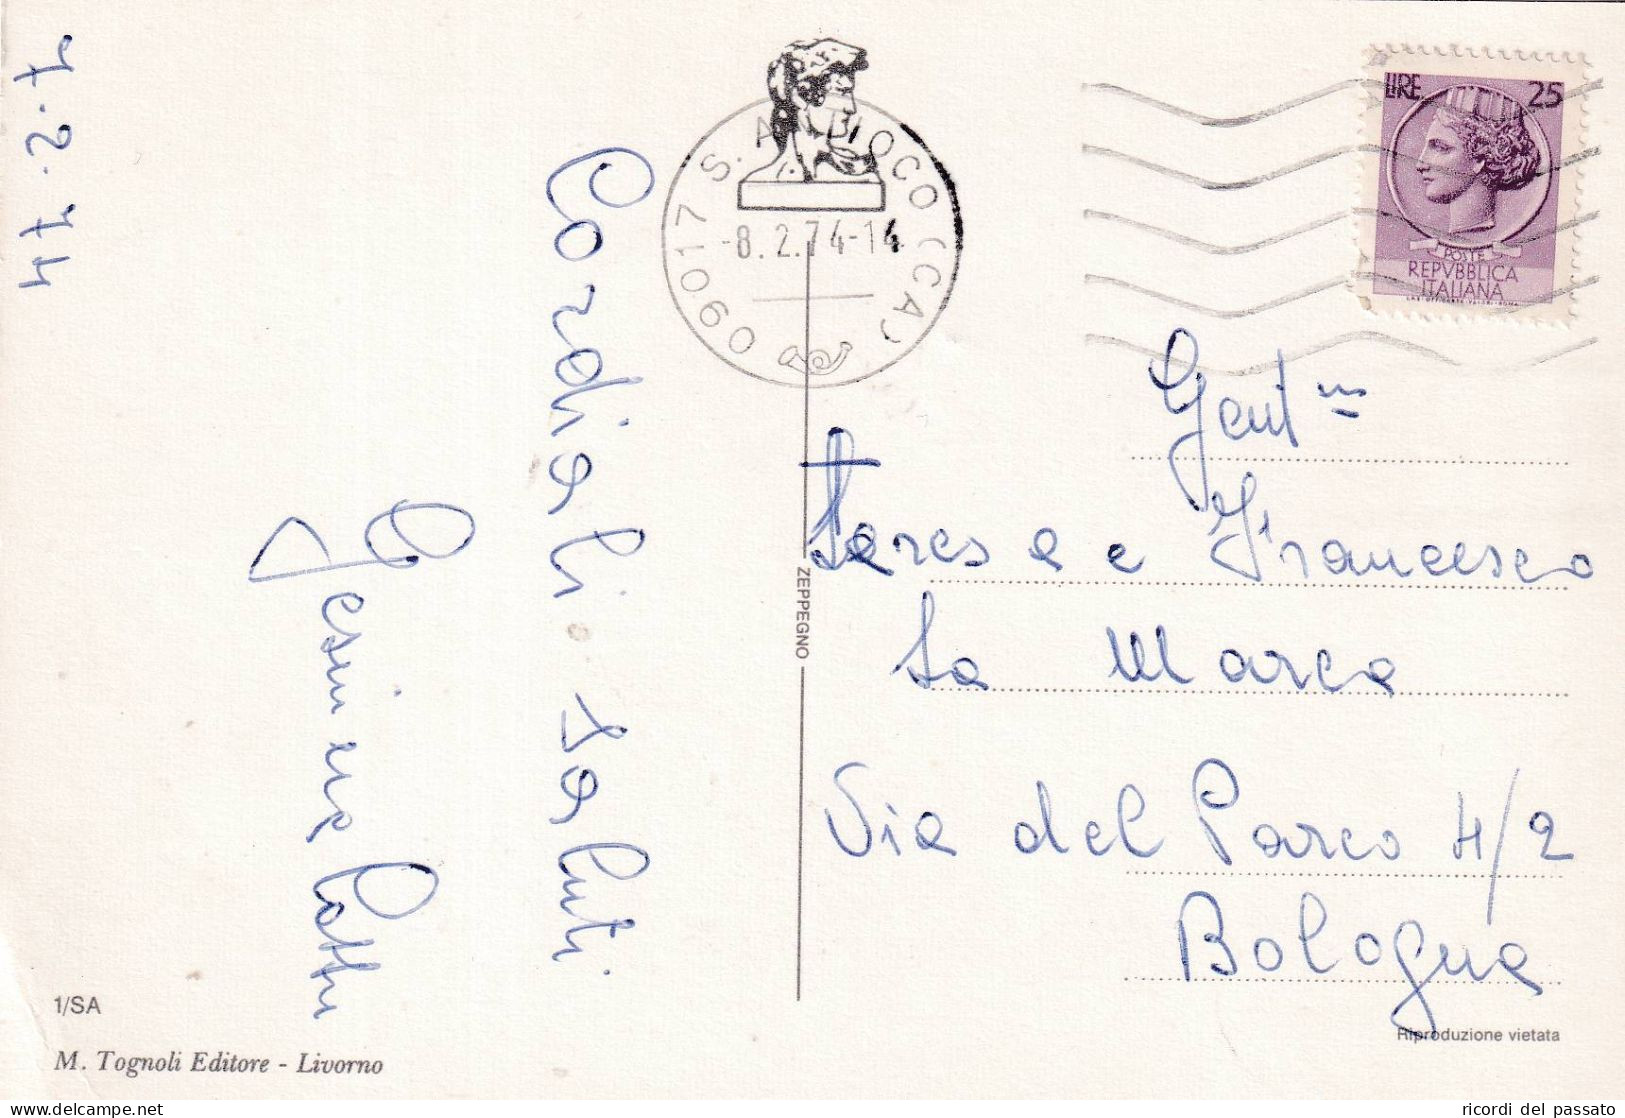 7.2.74
Cordiali saluti
LIRE 25
POSTE
REPVBBLICA
ITALIANA
09017 S. ANTIOCO (CA)
-8.2.74-14
Gent
Teresa e Francesco
La Marca
Via del Parco 4/2
Bologna
ZEPPEGNO
1/SA
M. Tognoli Editore - Livorno
Riproduzione vietata
ricordi del passato
delcampe.net